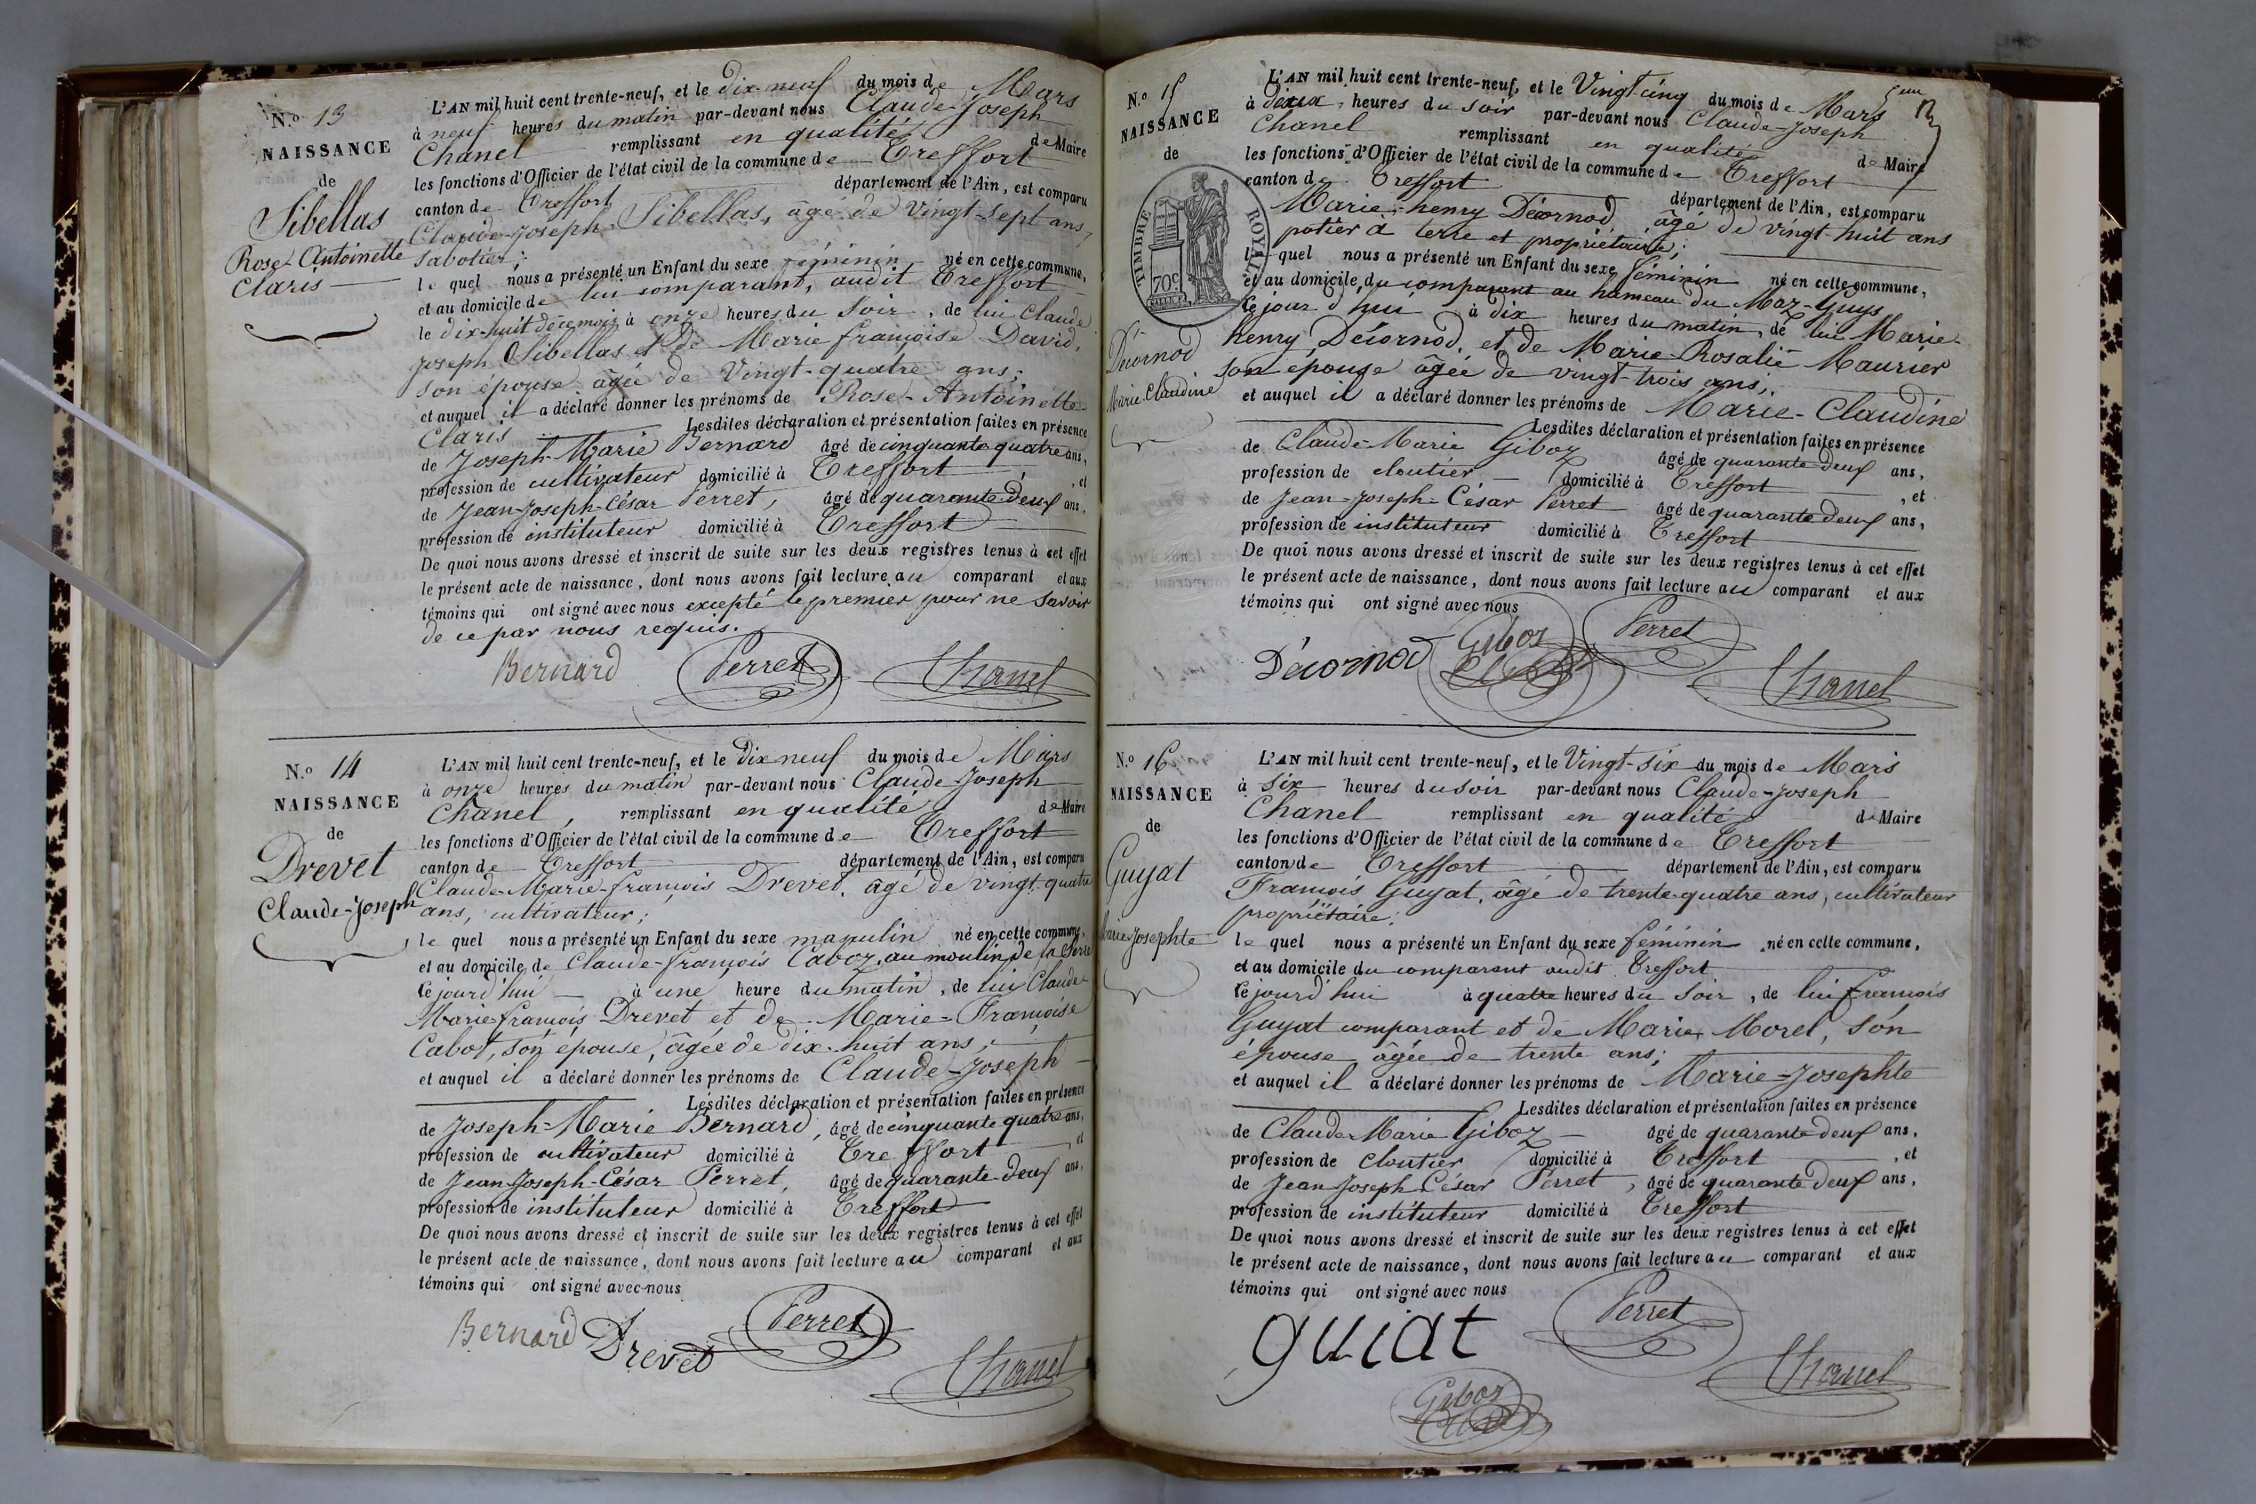 N.o 13
NAISSANCE
de
Sibellas
Rose Antoinette
Claris
L'AN mil huit cent trente-neuf, et le dix-neuf du mois de Mars
à neuf heures du matin par-devant nous Claude-Joseph
Chanel remplissant en qualité de Maire
les fonctions d'Officier de l'état civil de la commune de Treffort
canton de Treffort département de l'Ain, est comparu
Claude-Joseph Sibellas, âgé de vingt-sept ans,
sabotier;
le quel nous a présenté un Enfant du sexe féminin né en cette commune,
et au domicile de lui comparant, audit Treffort
le dix-huit dece mois à onze heures du soir, de lui Claude
Joseph Sibellas et de Marie françoise David,
son épouse âgée de vingt-quatre ans;
et auquel il a déclaré donner les prénoms de Rose-Antoinette
Claris Lesdites déclaration et présentation faites en présence
de Joseph-Marie Bernard âgé de cinquante quatre ans,
profession de cultivateur domicilié à Treffort, et
de Jean-Joseph-César Perret, âgé de quarante deux ans,
profession de instituteur domicilié à Treffort
De quoi nous avons dressé et inscrit de suite sur les deux registres tenus à cet effet
le présent acte de naissance, dont nous avons fait lecture au comparant et aux
témoins qui ont signé avec nous excepté le premier pour ne savoir
de ce par nous requis.
Bernard Perret Chanel
N.o 14
NAISSANCE
de
Drevet
Claude-Joseph
L'AN mil huit cent trente-neuf, et le dix neuf du mois de Mars
à onze heures du matin par-devant nous Claude Joseph
Chanel, remplissant en qualité de Maire
les fonctions d'Officier de l'état civil de la commune de Treffort
canton de Treffort département de l'Ain, est comparu
Claude-Marie-françois Drevet, âgé de vingt-quatre
ans, cultivateur;
le quel nous a présenté un Enfant du sexe masculin né en cette commune,
et au domicile de Claude-françois Caboz, au moulin de la
ce jourd'hui à une heure du matin, de lui Claude
Marie françois Drevet et de Marie-Françoise
Cabot, son épouse, âgée de dix-huit ans;
et auquel il a déclaré donner les prénoms de Claude-Joseph
Lesdites déclaration et présentation faites en présence
de Joseph-Marie Bernard, âgé de cinquante quatre ans,
profession de cultivateur domicilié à Treffort, et
de Jean-Joseph-César Perret, âgé de quarante-deux ans,
profession de instituteur domicilié à Treffort
De quoi nous avons dressé et inscrit de suite sur les deux registres tenus à cet effet
le présent acte de naissance, dont nous avons fait lecture au comparant et aux
témoins qui ont signé avec nous
Bernard Drevet Perret Chanel
N.o 15
NAISSANCE
de
TIMBRE ROYAL
70c
Décornod
Marie Claudine
L'AN mil huit cent trente-neuf, et le Vingt cinq du mois de Mars
à deux heures du soir par-devant nous Claude-Joseph
Chanel remplissant en qualité de Maire
les fonctions d'Officier de l'état civil de la commune de Treffort
canton de Treffort département de l'Ain, est comparu
Marie-henry Décornod âgé de vingt-huit ans
potier à terre et propriétaire;
le quel nous a présenté un Enfant du sexe féminin né en cette commune,
et au domicile du comparant au hameau du Moz-Guys
ce jour d'hui à dix heures du matin, de lui Marie-
henry Décornod, et de Marie-Rosalie Maurier
son epouse âgée de vingt-trois ans,
et auquel il a déclaré donner les prénoms de Marie-Claudine
Lesdites déclaration et présentation faites en présence
de Claude-Marie Giboz âgé de quarante deux ans,
profession de cloutier domicilié à Treffort, et
de Jean-Joseph-César Perret âgé de quarante deux ans,
profession de instituteur domicilié à Treffort
De quoi nous avons dressé et inscrit de suite sur les deux registres tenus à cet effet
le présent acte de naissance, dont nous avons fait lecture au comparant et aux
témoins qui ont signé avec nous
Décornod Giboz Perret Chanel
N.o 16
NAISSANCE
de
Guyat
Marie Josephte
L'AN mil huit cent trente-neuf, et le Vingt-six du mois de Mars
à six heures du soir par-devant nous Claude-Joseph
Chanel remplissant en qualité de Maire
les fonctions d'Officier de l'état civil de la commune de Treffort
canton de Treffort département de l'Ain, est comparu
François Guyat, âgé de trente-quatre ans, cultivateur
propriétaire;
le quel nous a présenté un Enfant du sexe féminin né en cette commune,
et au domicile du comparant audit Treffort
ce jourd'hui à quatre heures du soir, de lui françois
Guyat comparant et de Marie Morel, son
épouse âgée de trente ans;
et auquel il a déclaré donner les prénoms de Marie-Josephte
Lesdites déclaration et présentation faites en présence
de Claude Marie Giboz âgé de quarante deux ans,
profession de Cloutier domicilié à Treffort, et
de Jean Joseph César Perret, âgé de quarante deux ans,
profession de instituteur domicilié à Treffort
De quoi nous avons dressé et inscrit de suite sur les deux registres tenus à cet effet
le présent acte de naissance, dont nous avons fait lecture au comparant et aux
témoins qui ont signé avec nous
guiat Perret Chanel
Giboz